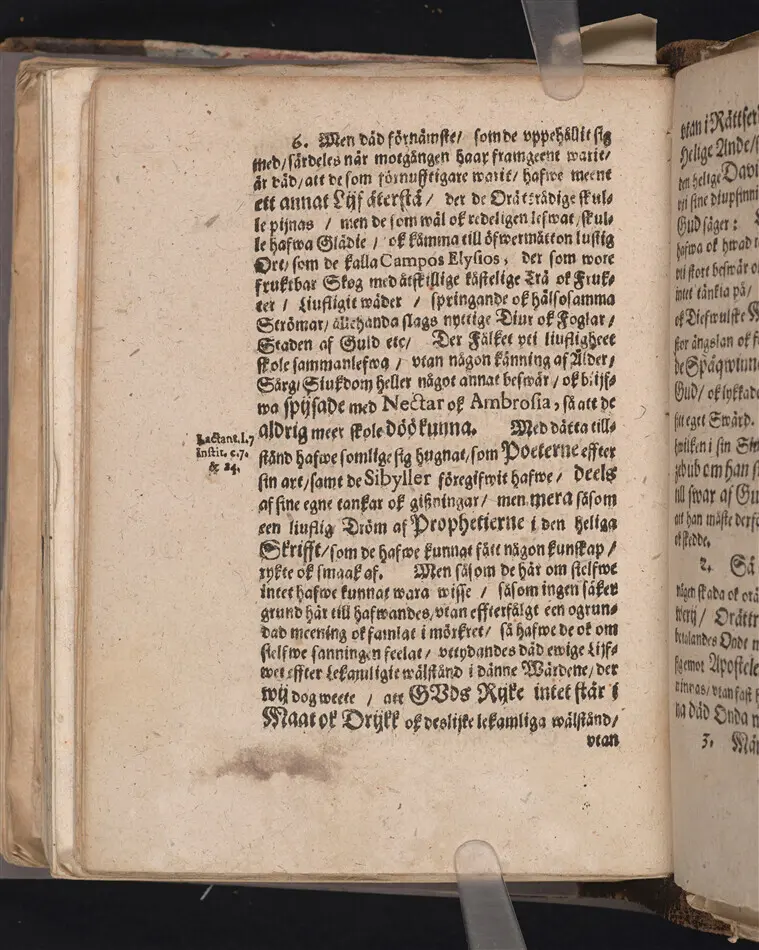 6. Men däd förnämste/ som de vppehållit sig
med/ särdeles när motgången haar framgeent warit/
är däd/ att de som förnufftigare warit/ hafwe meent
ett annat Lijf återstå / der de Orättrådige skul-
le pijnas / men de som wäl ok redeligen lefwat/ skul-
le hafwa Glädie / ok kämma till öfwermåtton lustig
Ort/ som de kalla Campos Elysios, der som wore
fruktbar Skog med åtskillige kästelige Trä ok Fruk-
ter / Liufligit wäder / springande ok hälsosamma
Strömar/ allehanda slags nyttige Diur ok Foglar/
Staden af Guld etc/ Der Fälket vti liufligheet
skole sammanlefwa / vtan någon känning af Ålder/
Sårg/ Siukdom heller något annat beswär/ ok blijf-
wa spijsade med Nectar ok Ambrosia, så att de
aldrig meer skole döö kunna. Med dätta till-
stånd hafwe somlige sig hugnat/ som Poeterne effter
sin art/ samt de Sibyller föregifwit hafwe/ deels
af sine egne tankar ok gißningar/ men mera såsom
een liuflig Dröm af Prophetierne i den heliga
Skrifft/ som de hafwe kunnat fått någon kunskap/
rykte ok smaak af. Men såsom de här om sielfwe
intet hafwe kunnat wara wisse / såsom ingen säker
grund här till hafwandes/ vtan effterfälgt een ogrun-
dad meening ok famlat i mörkret/ så hafwe de ok om
sielfwe sanningen feelat/ vttydandes däd ewige Lijf-
wet effter Lekamligit wälstånd i dänne Wärdene/ der
wij dog weete / att GVds Rijke intet står i
Maat ok Drijkk ok deslijke lekamliga wälstånd/
vtan
Lactant. l. 7
Instit. c. 7.
& 24.
vtan i Rättfer
Helige Ande/
den helige Davi
vti sine diupsinni
Gud säger:
hafwa ok hwad
vti stort beswär
intet tänkia på/
ok Diefwulske
stor ångslan ok
de Späqwinn
Gud/ ok lykkad
sitt eget Swärd.
hwilken i sin
zebub om han
till swar af Gu
att han måste derfö
2. Så
någon skada ok orä
Orättr
betalandes Ondt
Apostele
vtan fast
na däd Onda
3. Mä